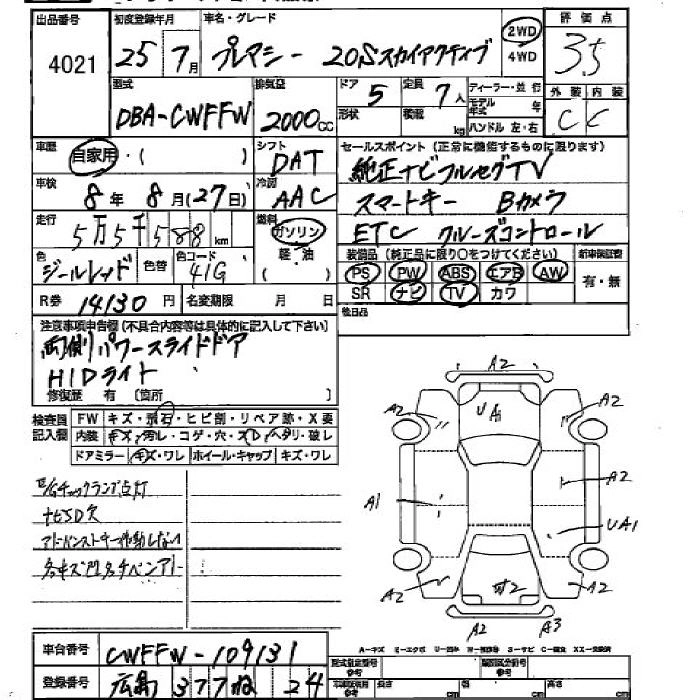 出品番号 初度登録年月 車名・グレード 評価点
4021 25 7月 プレマシー 20Sスカイアクティブ 2WD 4WD 3.5
型式 排気量 ドア 5 定員 7人 ディーラー・並行 外装 内装
DBA-CWFFW 2000cc 形状 積載 kg モデル年式 年 ハンドル 左・右 C C
車歴 自家用・( ) シフト DAT セールスポイント(正常に機能するものに限ります)
純正ナビフルセグTV
車検 8年 8月(27日) 冷房 AAC スマートキー Bカメラ
走行 5万5千588km 燃料 ガソリン ETC クルーズコントロール
軽・油 ( ) 装備品(純正品に限り○をつけてください) 新車保証書
色 ジールレッド 色替 色コード 41G PS PW ABS エアB AW 有・無
R券 14130円 名変期限 月 日 SR ナビ TV カワ
後日品
注意事項申告欄(不具合内容等は具体的に記入して下さい)
両側パワースライドドア
HIDライト
修復歴 有 〔箇所
検査員記入欄 FW キズ・飛石・ヒビ割・リペア跡・X要
内装 キズ・汚レ・コゲ・穴・スレ・ヘタリ・破レ
ドアミラー キズ・ワレ ホイール・キャップ キズ・ワレ
E/Gチェックランプ点灯
ナビSD欠
アドバンストキー作動しない
各キズ凹各チペンアト
A2
A2 UA1 A2
A1 A2
UA1
A2 凹2 A2
A2 A3
A-キズ
車台番号 CWFFW-109131
登録番号 広島 377ね 24
型式指定番号 参考 類別区分番号 参考
参考 長さ cm 幅 cm 高さ cm